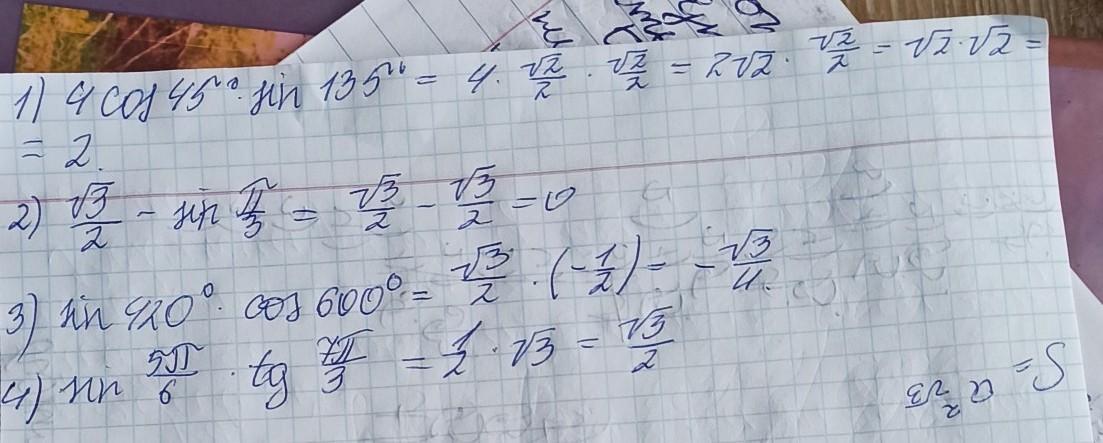 1) 4 cos 45° · sin 135° = 4 · √2/2 · √2/2 = 2√2 · √2/2 = √2 · √2 =
= 2.
2) √3/2 - sin π/3 = √3/2 - √3/2 = 0
3) sin 420° · cos 600° = √3/2 · (-1/2) = -√3/4
4) sin 5π/6 · tg 7π/3 = 1/2 · √3 = √3/2
S= a²√3